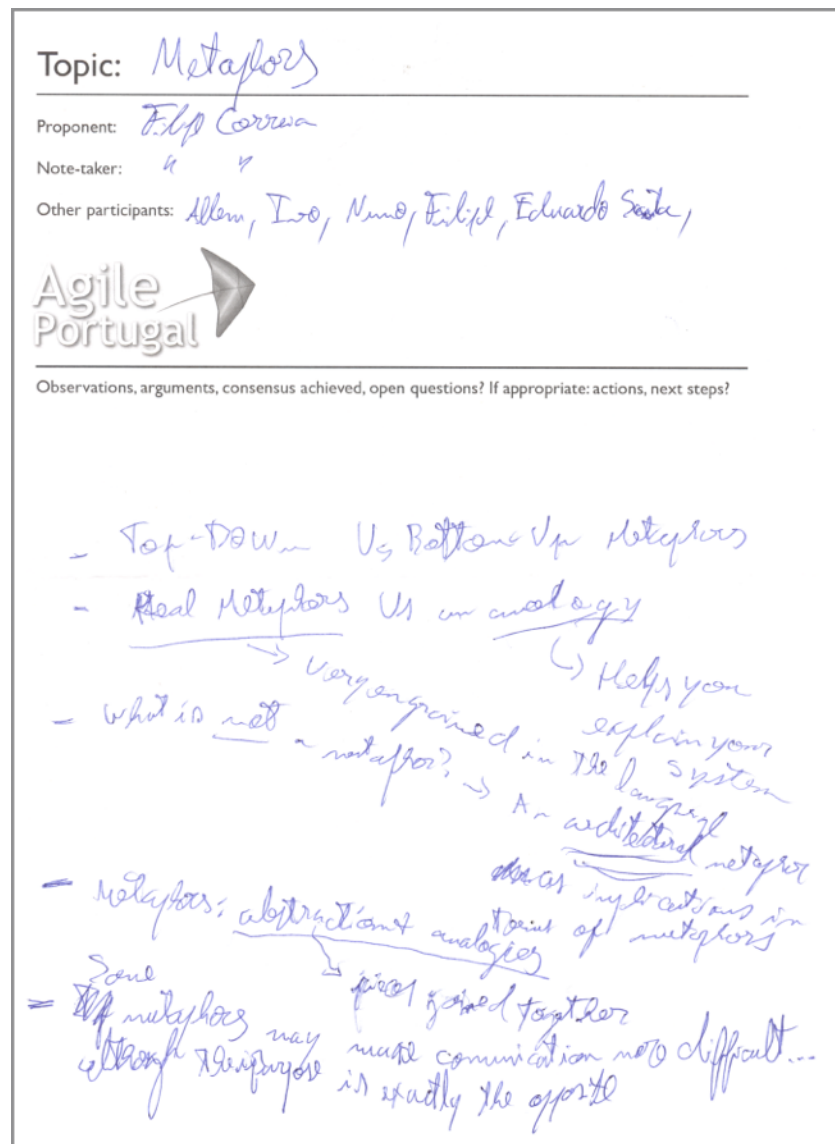 Topic: Metaphors
Proponent: Filip Correia
Note-taker: " "
Other participants: Allem, Ivo, Nuno, Filipe, Eduardo
Agile
Portugal
Observations, arguments, consensus achieved, open questions? If appropriate: actions, next steps?
- Top-Down Vs Bottom-Up Metaphors
- Real Metaphors Vs an analogy
→ Very engrained in the language
→ Helps you
explain your
system
- What is not a metaphor?
→ An architectural metaphor
has implications in
of metaphors
- Metaphors: abstractions + analogies
→ pieces joined together
= Some metaphors may make comunication more difficult...
although their purpose is exactly the opposite